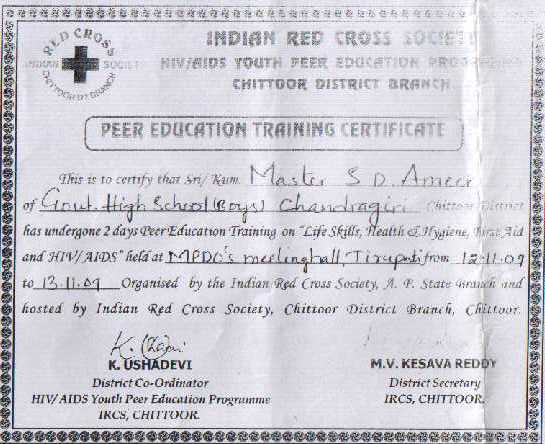 RED CROSS
INDIAN SOCIETY
CHITTOOR DT BRANCH
INDIAN RED CROSS SOCIETY
HIV/AIDS YOUTH PEER EDUCATION PROGRAMME
CHITTOOR DISTRICT BRANCH
PEER EDUCATION TRAINING CERTIFICATE
This is to certify that Sri/ Kum. Master S D. Ameer
of Govt. High School (Boys) Chandragiri Chittoor District
has undergone 2 days Peer Education Training on "Life Skills, Health & Hygiene, First Aid
and HIV/AIDS" held at MPDO's meeting hall, Tirupati from 12-11-09
to 13.11.09 Organised by the Indian Red Cross Society, A. P. State Branch and
hosted by Indian Red Cross Society, Chittoor District Branch, Chittoor.
K. USHADEVI
District Co-Ordinator
HIV/ AIDS Youth Peer Education Programme
IRCS, CHITTOOR.
M.V. KESAVA REDDY
District Secretary
IRCS, CHITTOOR.